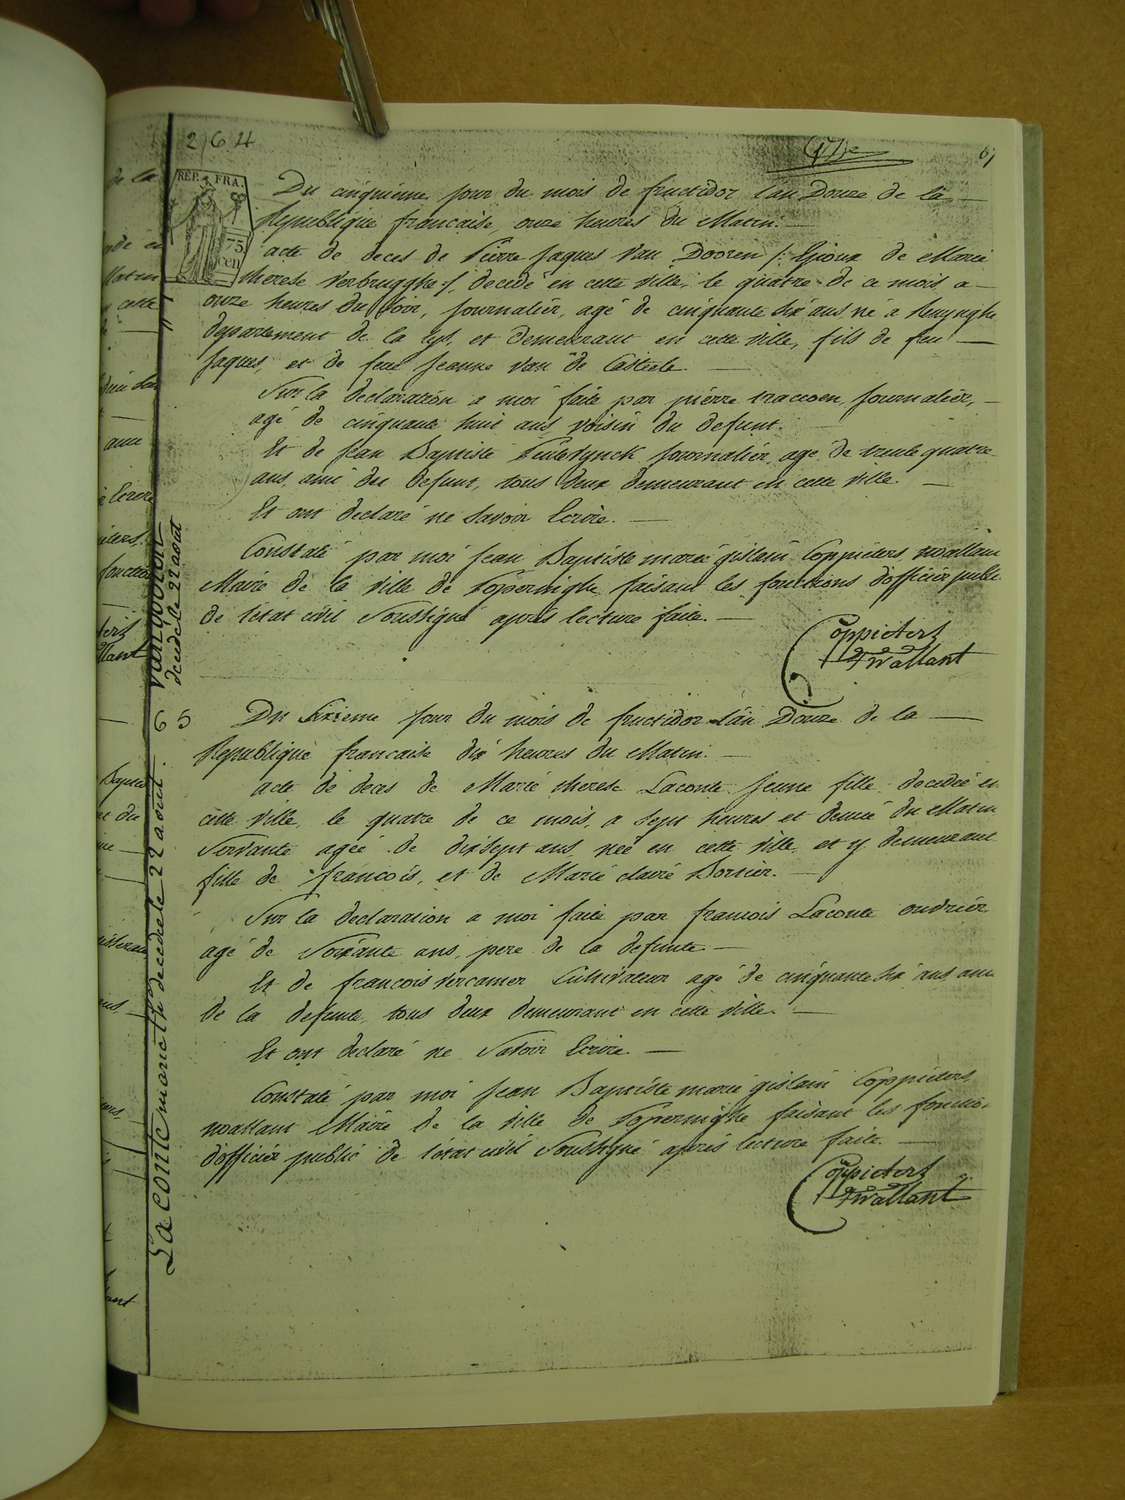 264
61
REP. FRA.
75
cen
Du cinquieme jour du mois de fructidor l'an Douze de la
Republique francaise, onze heures du Matin.
acte de deces de Pierre Jaques Van Dooren /: Epoux de Marie
therese Verbrugghe :/ decedé en cette ville, le quatre de ce mois a
onze heures du Soir, journalier, agé de cinquante six ans né a Reninghe
departement de la Lys, et demeurant en cette ville, fils de feu
Jaques, et de feue Jeanne Van de Casteele.
Sur la declaration a moi faite par pierre journalier,
agé de cinquante huit ans, voisin du defunt.
Et de Jean Baptiste journalier, agé de trente quatre
ans, ami du defunt, tous deux demeurant en cette ville.
Et ont declaré ne Savoir Ecrire.
Constaté par moi Jean Baptiste marie gislain Coppieters wallant
Maire de la ville de Poperinghe faisant les fonctions d'officier public
de l'etat civil Soussigné après lecture faite.
Coppieters
Wallant
Van dooren
decedé le 22 aout
6 5
Du Sixieme jour du mois de fructidor l'an Douze de la
Republique francaise dix heures du Matin.
acte de deces de Marie therese Laconte jeune fille decedée en
cette ville, le quatre de ce mois, a Sept heures et demie du Matin
Servante agée de dixsept ans, née en cette ville, et y demeurant
fille de francois, et de Marie claire
Sur la declaration a moi faite par francois Laconte ouvrier
agé de Soixante ans, pere de la defunte
Et de francois vercamer Cultivateur agé de cinquante six ans ami
de la defunte, tous deux demeurant en cette ville.
Et ont declaré ne Savoir Ecrire.
Constaté par moi Jean Baptiste marie gislain Coppieters
wallant Maire de la ville de Poperinghe faisant les fonctions
d'officier public de l'etat civil Soussigné après lecture faite.
Coppieters
Wallant
La conte marie th decedé le 22 aout